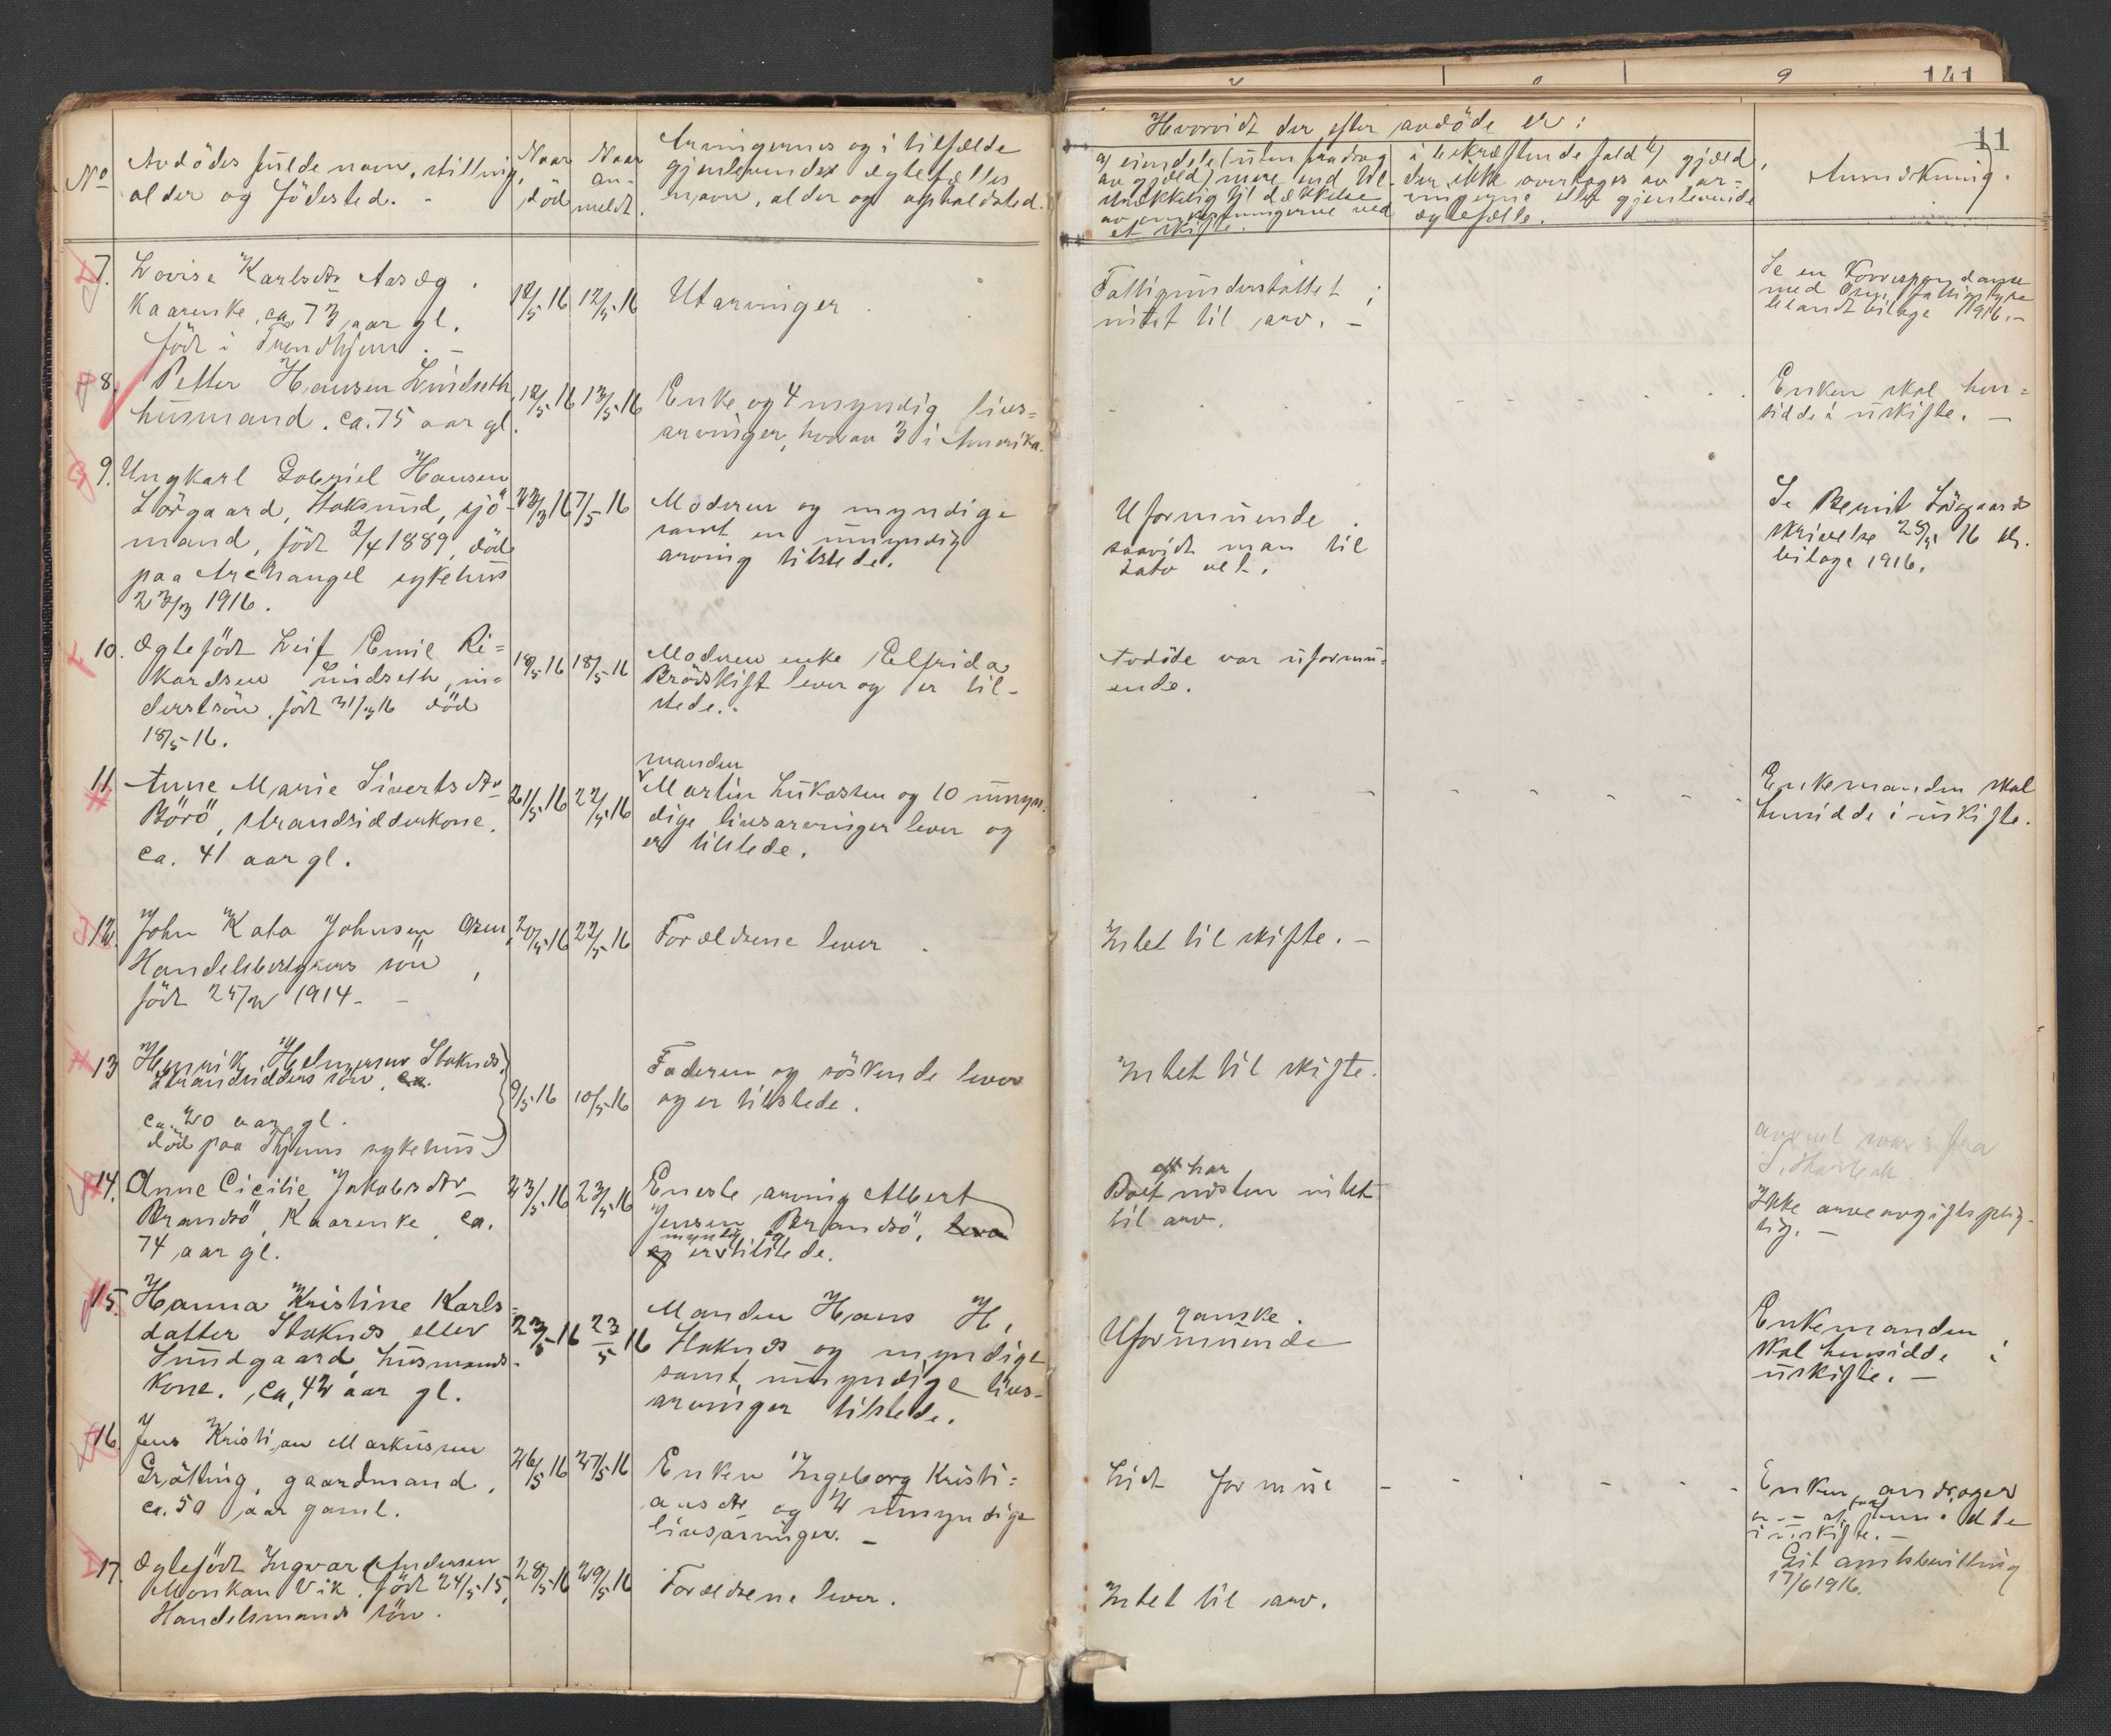 141
11
No
Avdödes fulde navn, stilling,
alder og födested. -
Naar
död
Naar
an-
meldt.
Arvingernes og i tilfælde
gjenlevendes egtefælles
navn, alder og opholdsted.
Hvorvidt der efter avdöde er:
a) eiendele (uten fradrag
av gjæld) mere end til-
strækkelig til dækkelse
av omkostningerne ved
et skifte.
i bekræftende fald b) gjæld,
der ikke overtages av ar-
vingerne eller gjenlevende
egtefælle.
Anmerkning.
7.
Lovise Karlsdtr Aasæg
Kaarenke, ca. 73 aar gl.
född i Trondhjem. -
12/5 16
12/5 16
Utarvinger.
Fattigunderstöttet;
intet til arv. -
Se en korrespondanse
med
blandt bilage 1916. -
8.
Petter Hansen Lindseth
husmand. ca. 75 aar gl.
12/5 16
13/5 16
Enke og 4 myndig livs-
arvinger, hvorav 3 i Amerika.
Enken skal hen-
sidde i uskifte. -
9.
Ungkarl Gabriel Hansen
Lörgaard, Stoksund, sjö-
mand, född 2/4 1889, död
paa Archangel sykehus
23/3 1916.
23/3 16
7/5 16
Moderen og myndige
samt en umyndig
arving tilstede.
Uformuende
saavidt man til
dato vet.
Se Bernt Lörgaards
skrivelse 28/5 16 bl.
bilage 1916.
10.
Egtefödt Leif Emil Ri-
kardsen Lindseth, in-
derstsön, född 31/3 16 död
18/5-16.
18/5 16
18/5 16
Modren enke Elfrida
Brödskift lever og er til-
stede. -
Avdöde var uformu-
ende.
11.
Anne Marie Sivertsdtr
Börö, strandsidderkone,
ca. 41 aar gl.
21/5 16
22/5 16
manden
Martin Lukassen og 10 umyn-
dige livsarvinger lever og
er tilstede.
Enkemanden skal
hensidde i uskifte.
12.
John Kato Johnsen
Handelsbestyrers sön,
född 25/2 1914. -
20/5 16
22/5 16
Forældrene lever.
Intet til skifte. -
13
Henrik Helmersen Stoknes,
Strandsidders sön, ca.
ca. 20 aar gl.
död paa Thjems sykehus
9/5 16
10/5 16
Faderen og söskende lever
og er tilstede.
Intet til skifte.
14.
Anne Cicilie Jakobsdtr
Brandsö, Kaarenke, ca.
74 aar gl.
23/5 16
23/5 16
Eneste arving Albert
Jensen Brandsö, lever
myndig og
og er tilstede.
har
Boet næsten intet
til arv.
fra
Ikke arveavgiftsplig-
tig. -
15.
Hanna Kristine Karls-
datter Stoknes eller
Sundgaard, husmands-
kone. ca. 42 aar gl.
23/5 16
23/5 16
Manden Hans H.
Stoknes og myndige
samt umyndige livs-
arvinger tilstede.
ganske
Uformuende
Enkemanden
skal hensidde i
uskifte. -
16.
Jens Kristian Markussen
Grötting, gaardmand,
ca. 50 aar gaml.
26/5 16
27/5 16
Enken Ingeborg Kristi-
ansdtr og 4 umyndige
livsarvinger. -
Lidt formue
Enken andrager
i uskifte. -
Git amtsbevilling
17/6 1916.
17.
Egtefödt Ingvar Andersen
Monkan Vik, född 24/5 15,
Handelsmands sön.
28/5 16
29/5 16
Forældrene lever.
Intet til arv.